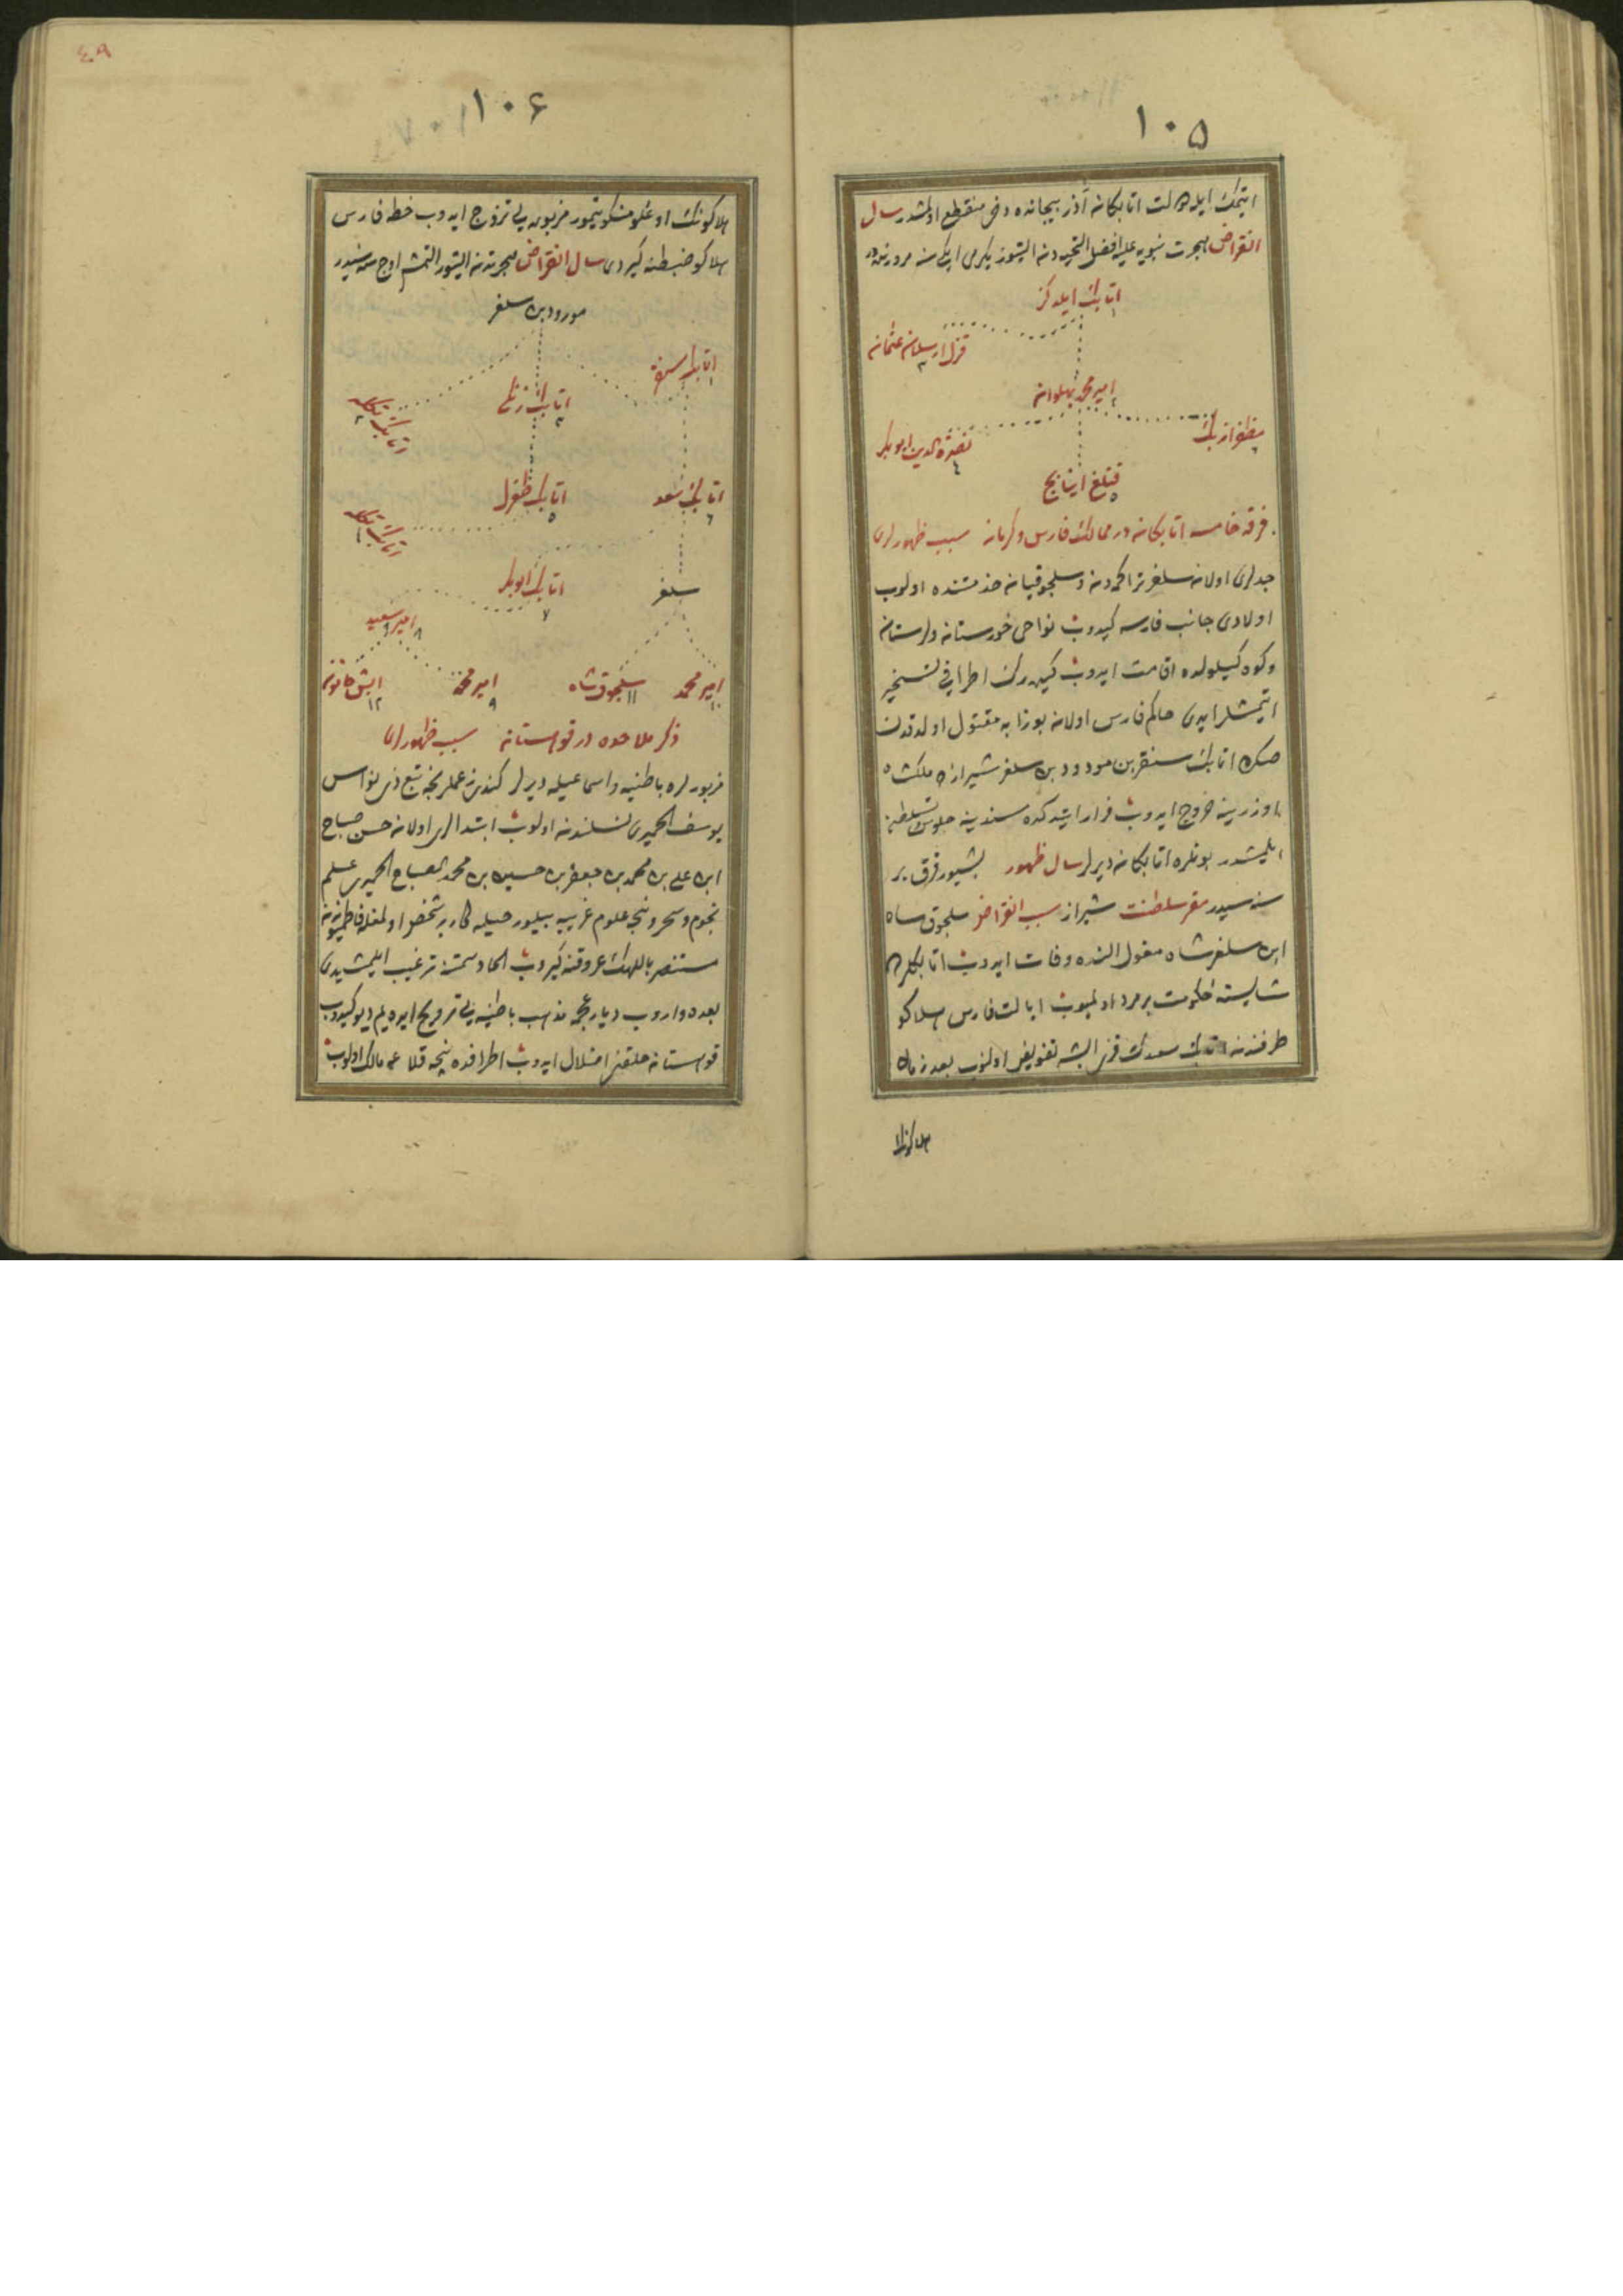 ١٠٥
ايتمك ايله دولت اتابكان آذربيجانده دخى منقطع اولمشدر سال
انقراض هجرت نبويه عليه افضل التحيه دن التيوز يكرمى ايكى سنه مرورنده در
اتابك ايلدكز ١
قزل ارسلان عثمان ٣
امير محمد پهلوان ٢
مظفر ازبك ٦
نصرة الدين ابوبكر ٤
قتلغ اينانج ٥
فرقه خامسه اتابكان در ممالك فارس و كرمان سبب ظهورلرى
جدلرى اولان سلغر تراكمه دن و سلجوقيان خدمتنده اولوب
اولادى جانب فارسه كيدوب نواحى خوزستان و لرستان
و كوه كيلولده اقامت ايدوب كيدرك اطرافى تسخير
ايتمشلر ايدى حاكم فارس اولان بوزابه مقتول اولدقدن
صكره اتابك سنقر بن مودود بن سلغر شيرازده ملكشاه
اوزرينه خروج ايدوب فرار ايتدكده سندينه جلوس تسلطن
ايلمشدر بونلره اتابكان ديرلر سال ظهور بشيوز قرق بر
سنه سيدر مقر سلطنت شيراز سبب انقراض سلجوق شاه
ابن سلغر شاه مغول النده وفات ايدوب اتابكلردن
شايسته حكومت بر مرد اولميوب ايالت فارس هلاكو
طرفندن اتابك سعدك قزى ابشه تفويض اولنوب بعد زمان
هلاكونك
١٠٦
٤٩
هلاكونك اوغلو منكوتيمور مزبوره يى تزوج ايدوب خطه فارس
هلاكو ضبطنه كيردى سال انقراض هجرتدن التيوز التمش اوچ سنه سيدر
مودود بن سلغر
اتابك سنقر ١
اتابك زنكى ٢
اتابك تكله
اتابك سعد ٦
اتابك طغرل ٥
اتابك تكله
سلغر
اتابك ابوبكر ٧
امير سعيد ٨
امير محمد ١٠
سلجوقشاه ١١
امير محمد ٩
ابش خاتون ١٢
ذكر ملاحده در قوهستان سبب ظهورلرى
مزبورلره باطنيه و اسماعيليه ديرلر كندى زعملرنجه تبع ذى نواس
يوسف الحميرى نسلندن اولوب ابتدالرى اولان حسن صباح
ابن على بن محمد بن جعفر بن حسين بن محمد الصباح الحميرى علم
نجوم و سحر و نيجه علوم غريبه بيلور حيله كار بر شخص اولمغله فاطميوندن
مستنصر باللهك عروقنه كيروب الحاد سمتنه ترغيب ايلمشيدى
بعده واروب ديار عجمه مذهب باطنيه يى ترويج ايده يم ديو كيدوب
قوهستان خلقنى اضلال ايدوب اطرافده نيجه قلاعه مالك اولوب